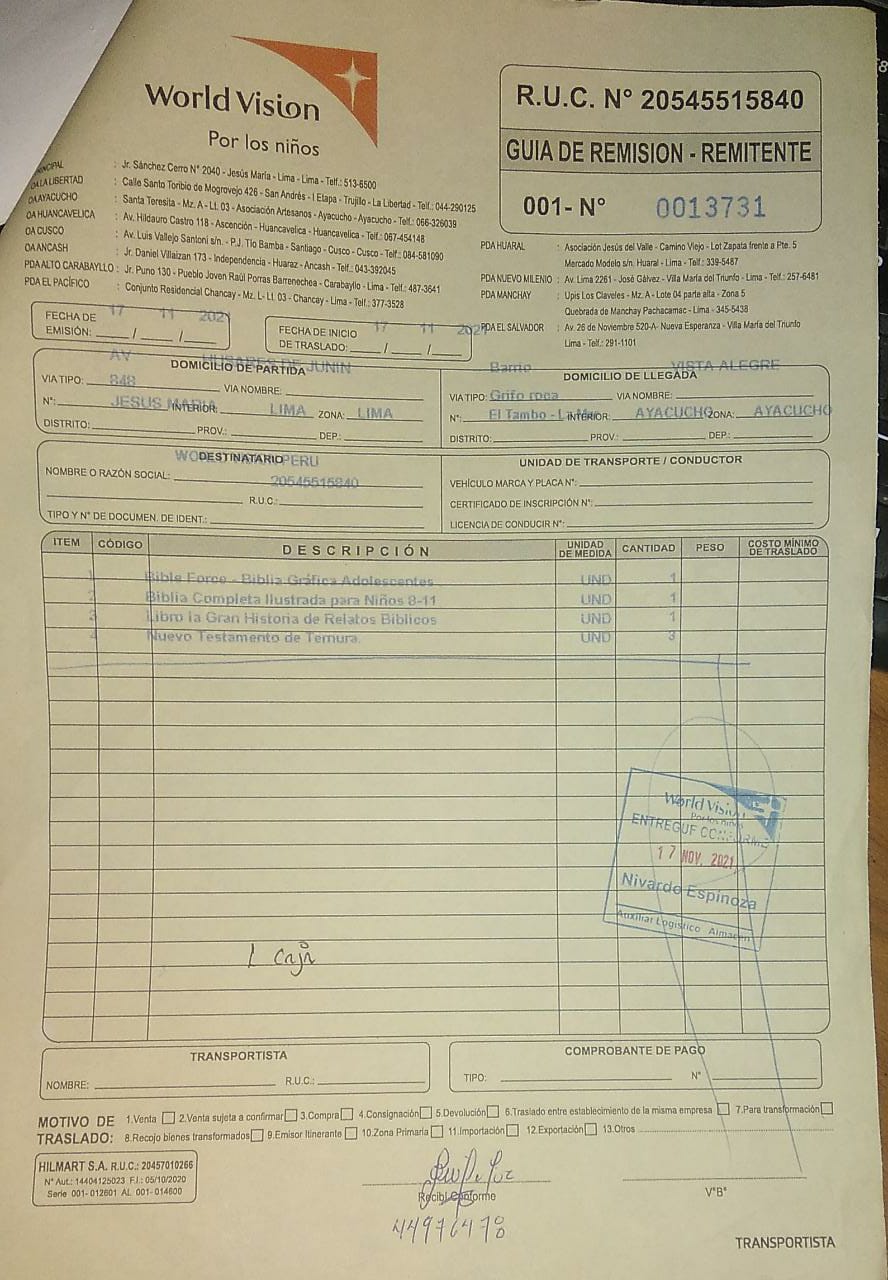 World Vision
Por los niños
R.U.C. N° 20545515840
GUIA DE REMISION - REMITENTE
001- N° 0013731
: Jr. Sánchez Cerro N° 2040 - Jesús María - Lima - Lima - Telf.: 513-6500
OA LA LIBERTAD : Calle Santo Toribio de Mogrovejo 426 - San Andrés - I Etapa - Trujillo - La Libertad - Telf.: 044-290125
OA AYACUCHO : Santa Teresita - Mz. A - Lt. 03 - Asociación Artesanos - Ayacucho - Ayacucho - Telf.: 066-326039
OA HUANCAVELICA : Av. Hildauro Castro 118 - Ascención - Huancavelica - Huancavelica - Telf.: 067-454148
OA CUSCO : Av. Luis Vallejo Santoni s/n. - P.J. Tío Bamba - Santiago - Cusco - Cusco - Telf.: 084-581090
OA ANCASH : Jr. Daniel Villaizan 173 - Independencia - Huaraz - Ancash - Telf.: 043-392045
PDA ALTO CARABAYLLO : Jr. Puno 130 - Pueblo Joven Raúl Porras Barrenechea - Carabayllo - Lima - Telf.: 487-3641
PDA EL PACÍFICO : Conjunto Residencial Chancay - Mz. L- Lt. 03 - Chancay - Lima - Telf.: 377-3528
PDA HUARAL : Asociación Jesús del Valle - Camino Viejo - Lot Zapata frente a Pte. 5
Mercado Modelo s/n. Huaral - Lima - Telf.: 339-5487
PDA NUEVO MILENIO : Av. Lima 2261 - José Gálvez - Villa María del Triunfo - Lima - Telf.: 257-6481
PDA MANCHAY : Upis Los Claveles - Mz. A - Lote 04 parte alta - Zona 5
Quebrada de Manchay Pachacamac - Lima - 345-5438
PDA EL SALVADOR : Av. 26 de Noviembre 520-A- Nueva Esperanza - Villa María del Triunfo
Lima - Telf.: 291-1101
FECHA DE EMISIÓN: 17 / 11 / 2021
FECHA DE INICIO DE TRASLADO: 17 / 11 / 2021
DOMICILIO DE PARTIDA
AV HUSARES DE JUNIN
VIA TIPO: 848 VIA NOMBRE:
N°: JESUS MARIA INTERIOR: LIMA ZONA: LIMA
DISTRITO: PROV.: DEP.:
Barrio VISTA ALEGRE
DOMICILIO DE LLEGADA
VIA TIPO: Grifo roca VIA NOMBRE:
N°: El Tambo - INTERIOR: AYACUCHO ZONA: AYACUCHO
DISTRITO: PROV.: DEP.:
DESTINATARIO
PERU
NOMBRE O RAZÓN SOCIAL:
20545515840
R.U.C.:
TIPO Y N° DE DOCUMEN. DE IDENT.:
UNIDAD DE TRANSPORTE / CONDUCTOR
VEHÍCULO MARCA Y PLACA N°:
CERTIFICADO DE INSCRIPCIÓN N°:
LICENCIA DE CONDUCIR N°:
ITEM CÓDIGO DESCRIPCIÓN UNIDAD DE MEDIDA CANTIDAD PESO COSTO MÍNIMO DE TRASLADO
1 Bible Force - Biblia Gráfica Adolescentes UND 1
2 Biblia Completa Ilustrada para Niños 8-11 UND 1
3 Libro la Gran Historia de Relatos Bíblicos UND 1
4 Nuevo Testamento de Ternura. UND 3
World Vision
Por los niños
ENTREGUE CONFORME
17 NOV. 2021
Nivardo Espinoza
Auxiliar Logístico - Almacén
1 Caja
TRANSPORTISTA
NOMBRE: R.U.C.:
COMPROBANTE DE PAGO
TIPO: N°
MOTIVO DE TRASLADO: 1.Venta 2.Venta sujeta a confirmar 3.Compra 4.Consignación 5.Devolución 6.Traslado entre establecimiento de la misma empresa 7.Para transformación
8.Recojo bienes transformados 9.Emisor Itinerante 10.Zona Primaria 11.Importación 12.Exportación 13.Otros
HILMART S.A. R.U.C.: 20457010266
N° Aut.: 14404125023 F.I.: 05/10/2020
Serie 001- 012601 AL 001- 014600
Recibí conforme
44976478
V°B°
TRANSPORTISTA